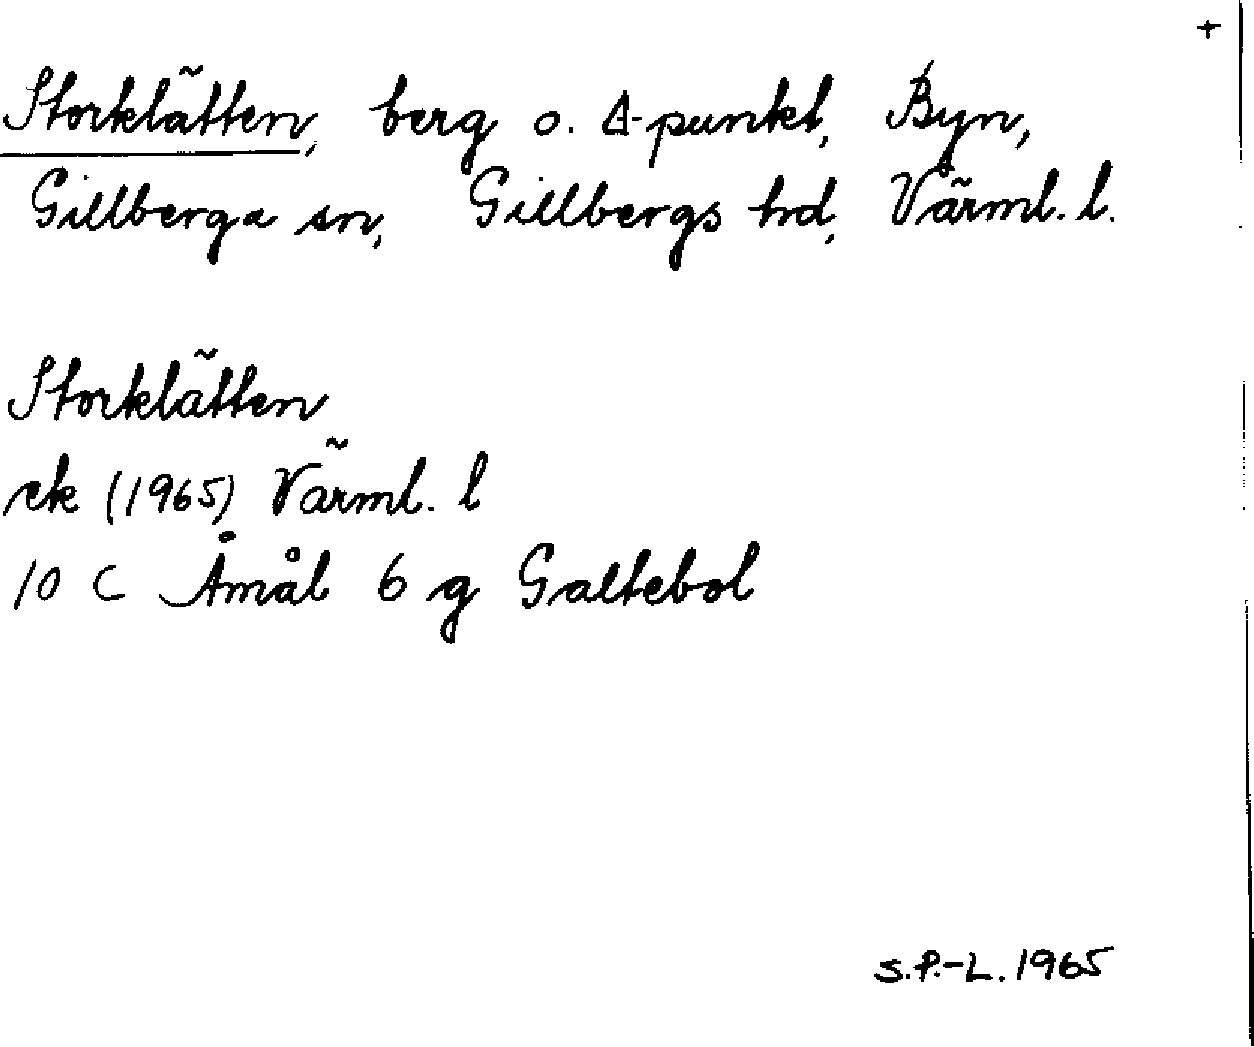 +
Storklätten, berg o. Δ-punkt, Byn,
Gillberga sn, Gillbergs hd, Värml. l.
Storklätten
ek (1965) Värml. l
10 C Åmål 6 g Galtebol
S.P.-L. 1965